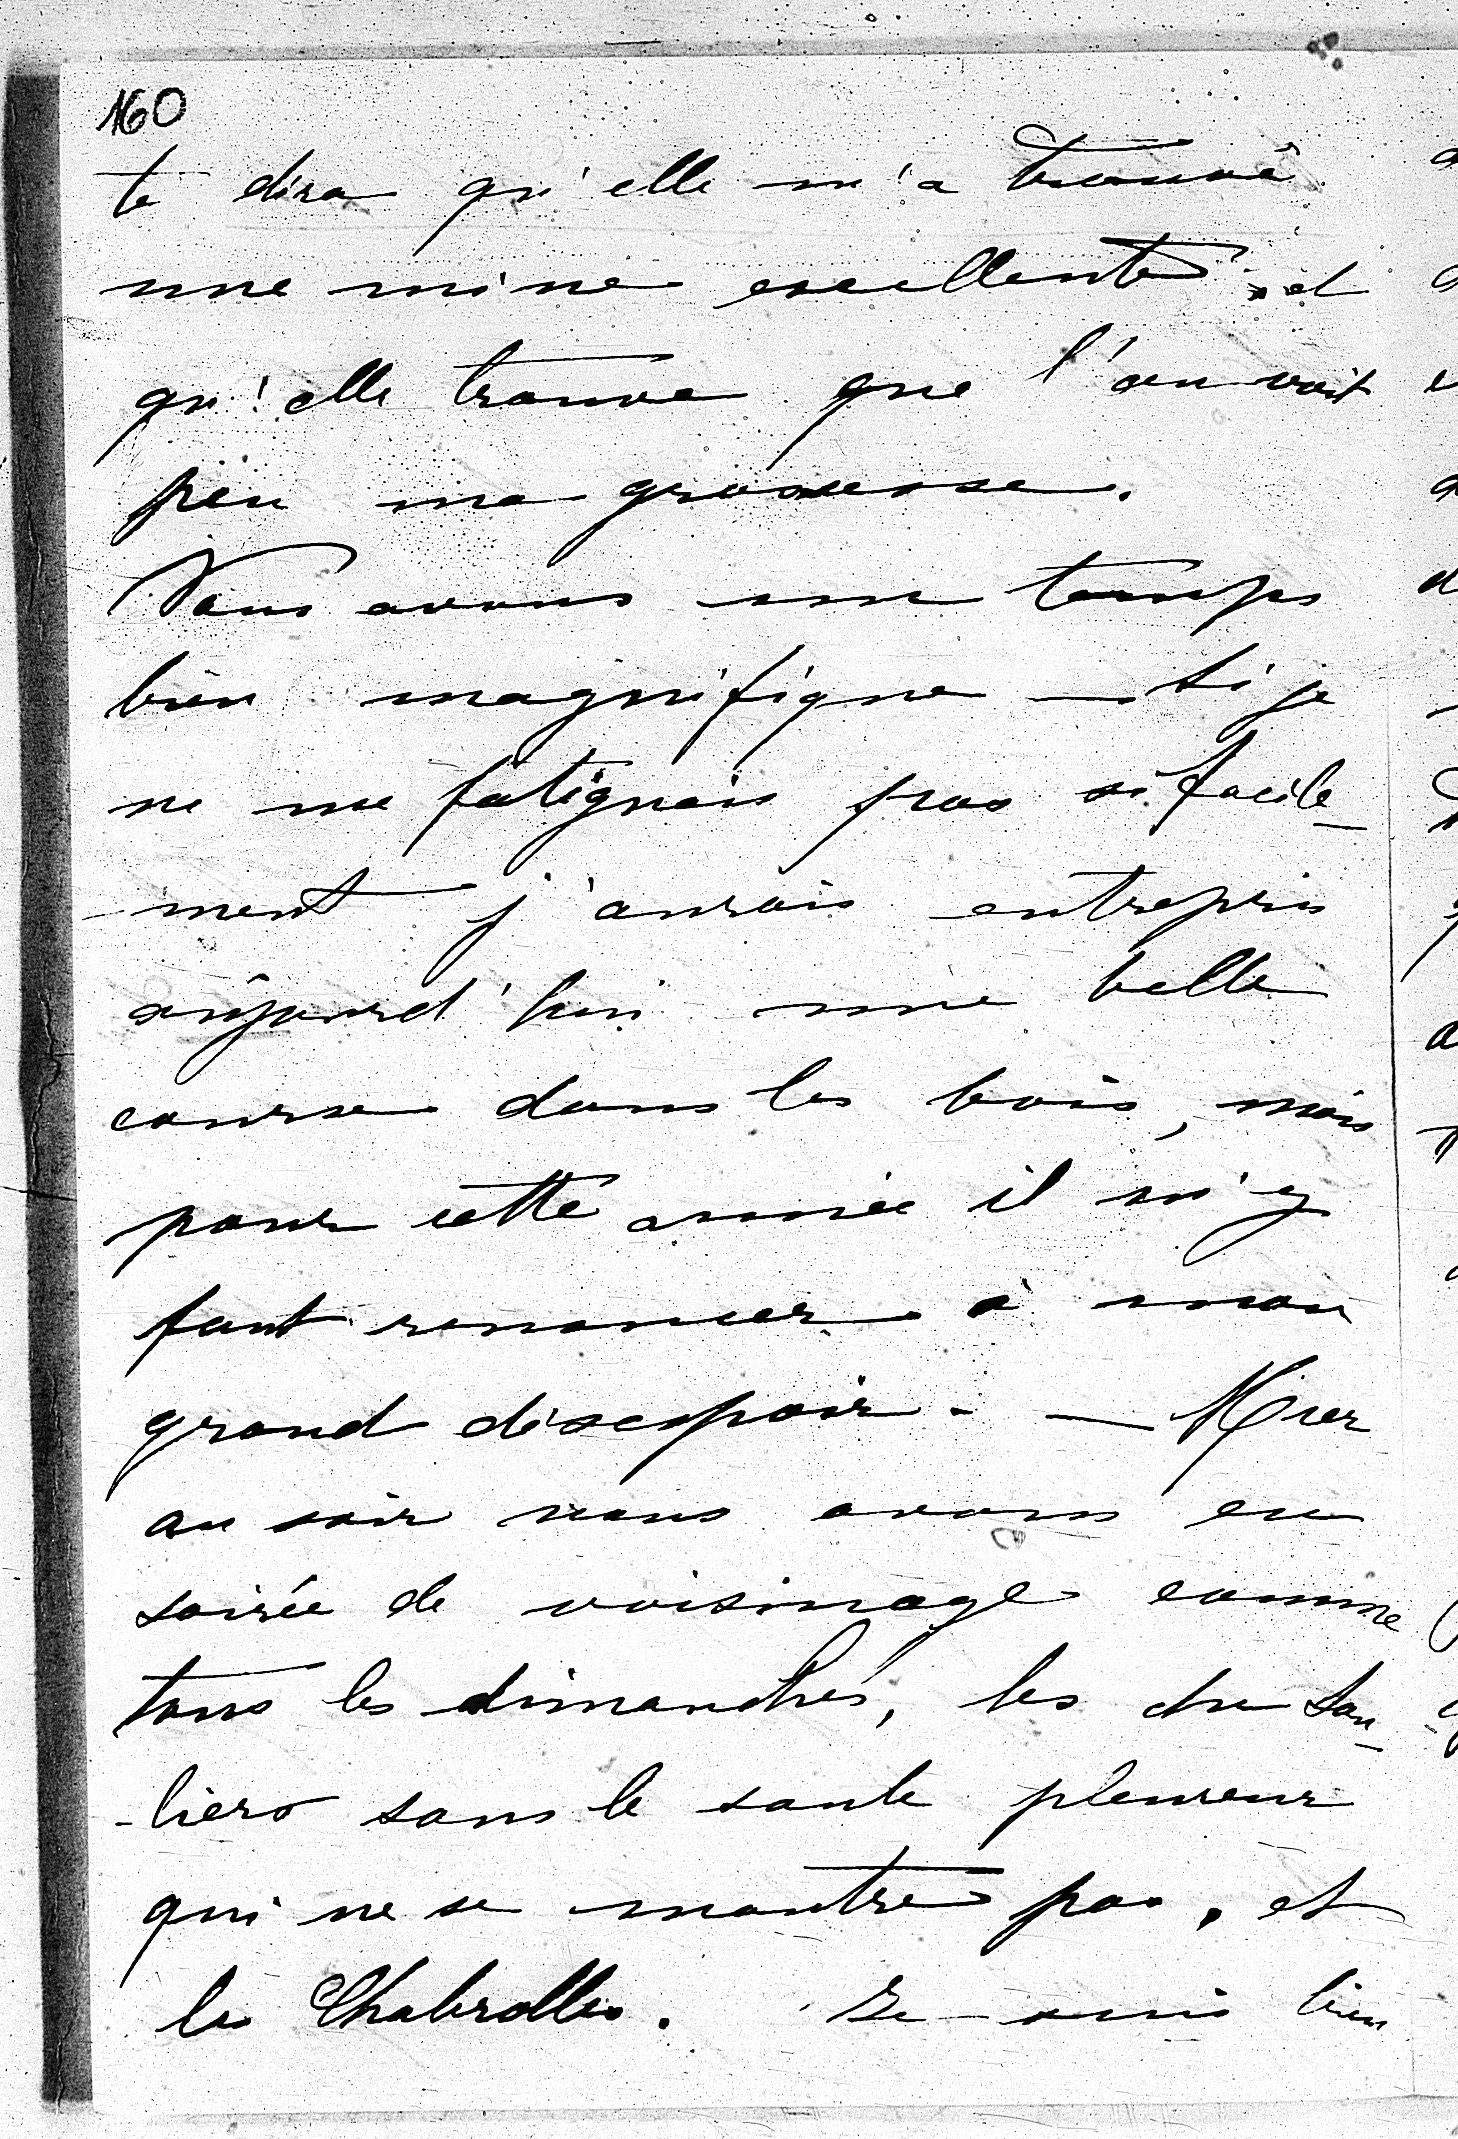 160
te dira qu'elle m'a trouvé
une mine excellente, et
qu'elle trouve que l'on voit
peu ma grossesse.
Nous avons un temps
bien magnifique — si je
ne me fatiguais pas si facile-
-ment j'aurais entrepris
aujourd'hui une belle
course dans les bois, mais
pour cette année il n'y
faut renoncer à mon
grand désespoir. — Hier
au soir nous avons eu
soirée de voisinage comme
tous les dimanches, les du Sou-
-liers sans le saule pleureur
qui ne se montre pas, et
les Chabrolles. Je suis bien